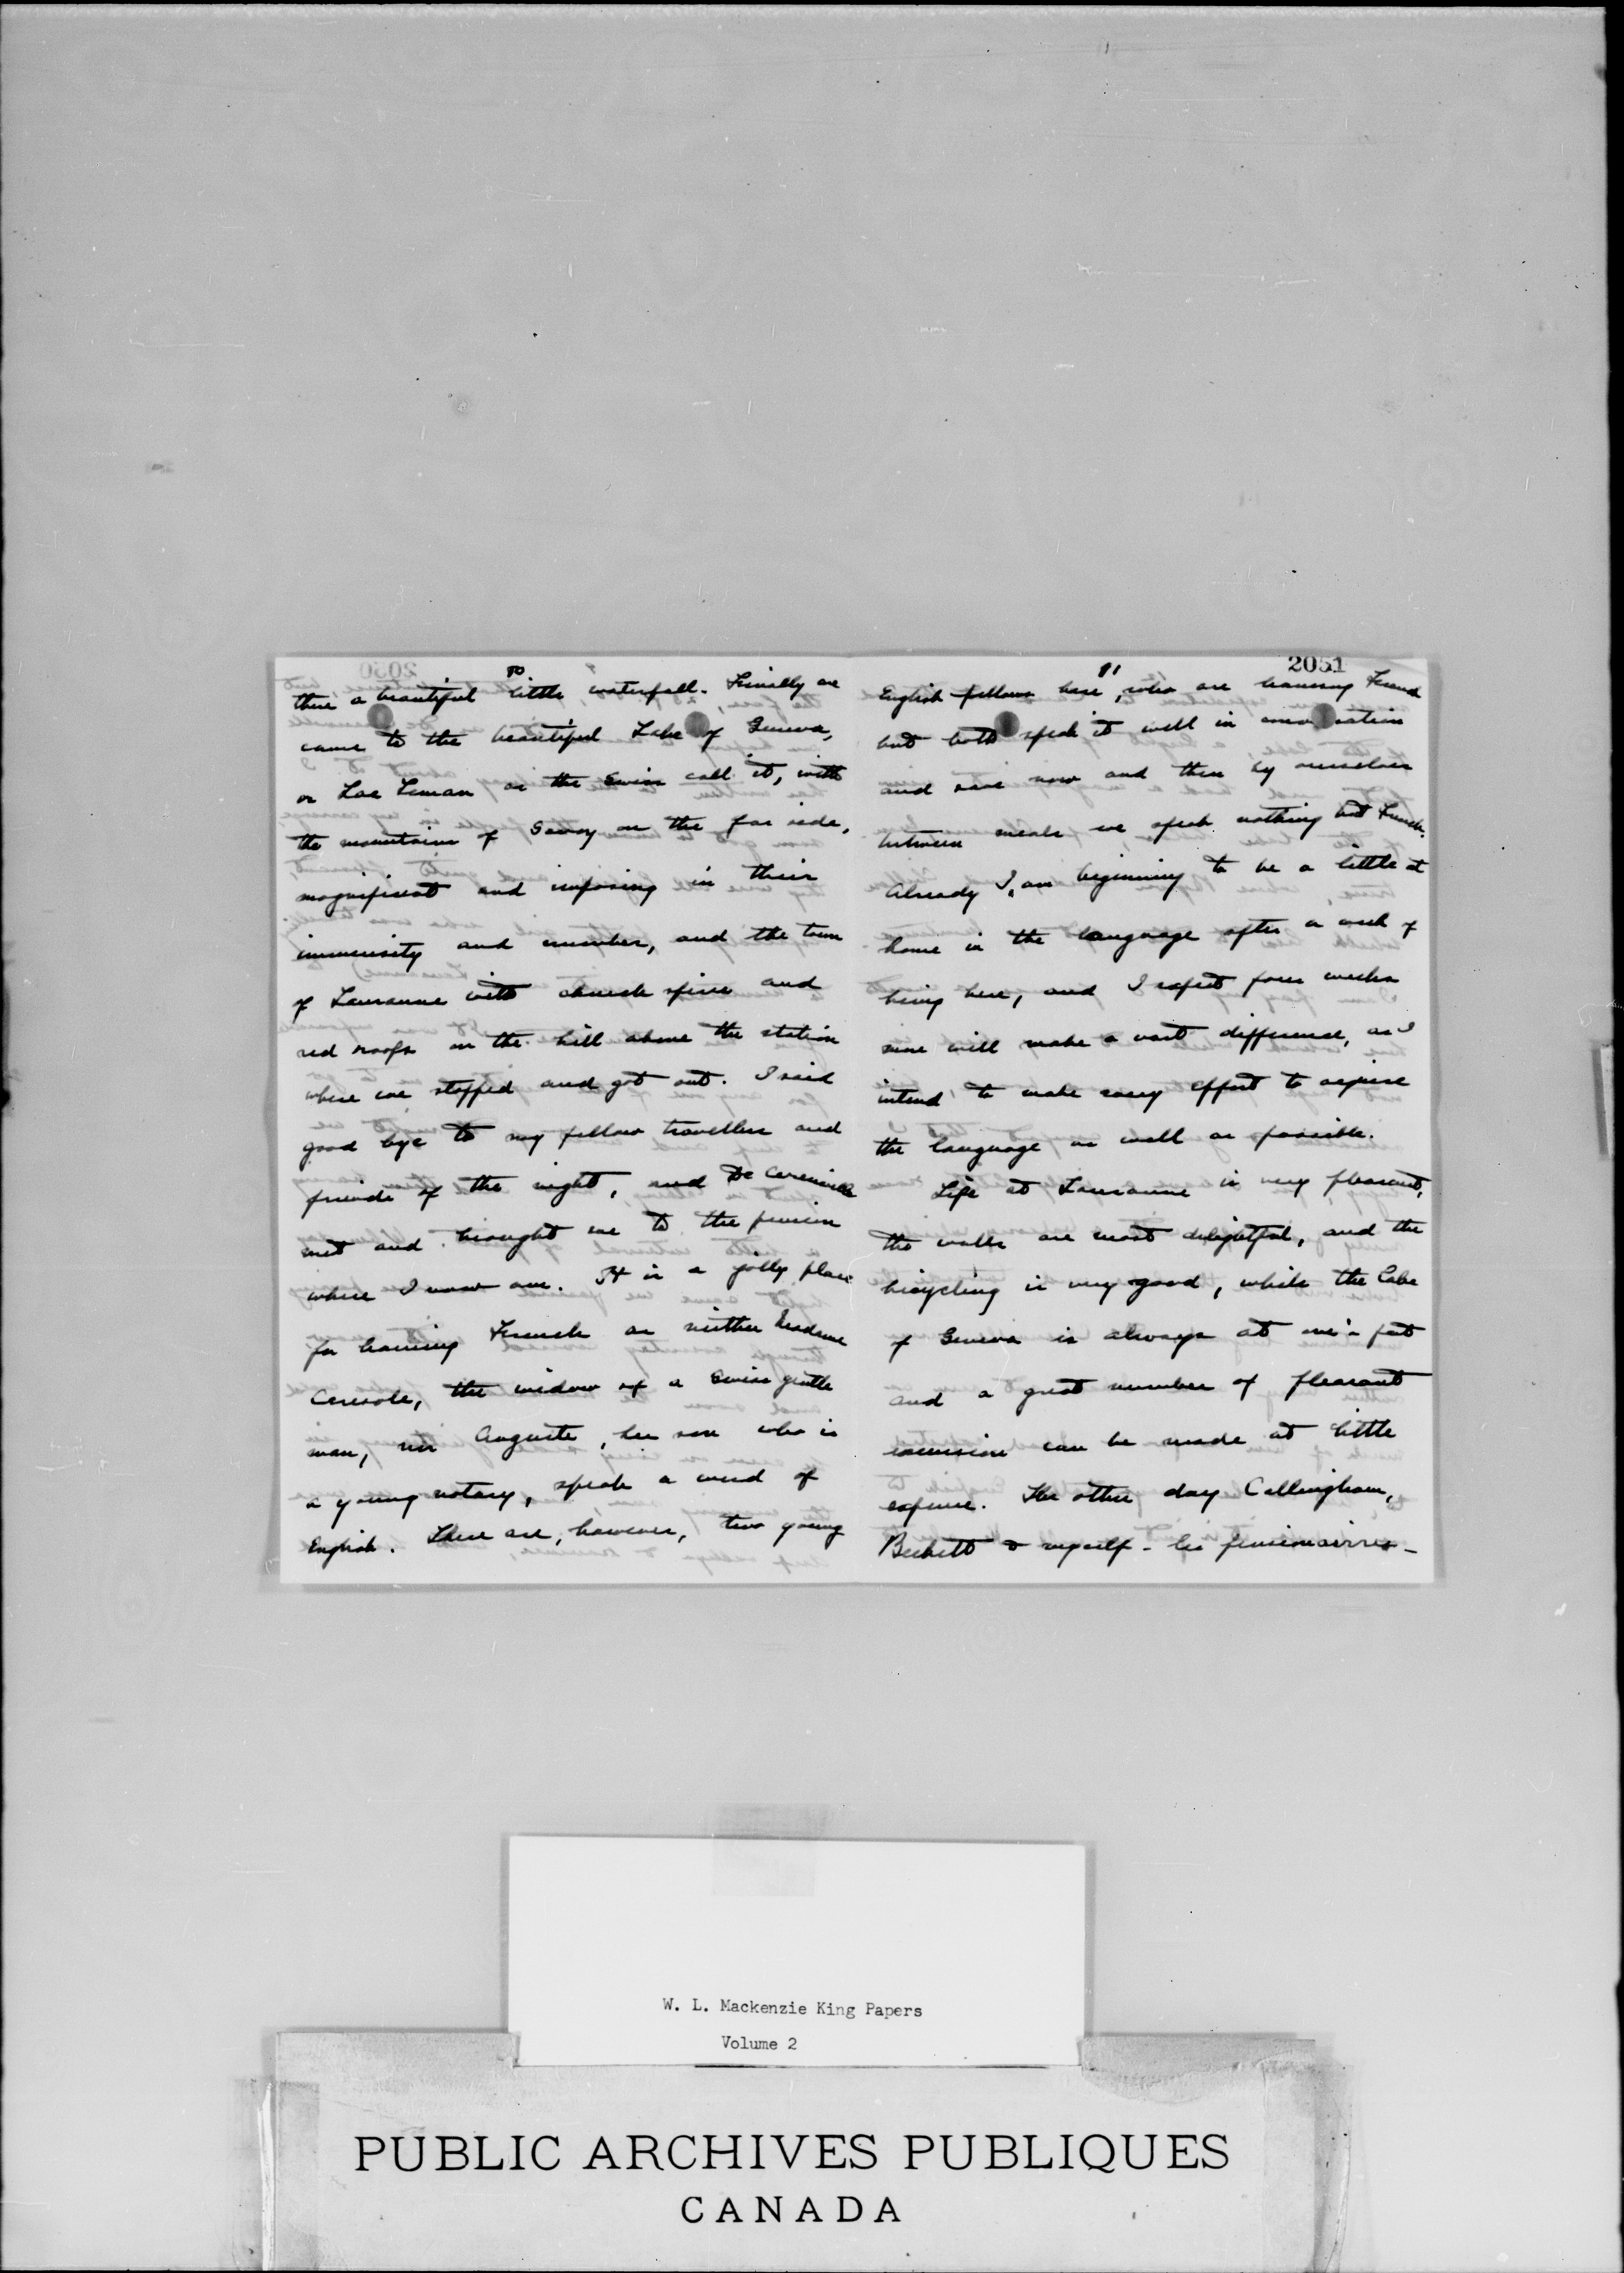 10
there a beautiful little waterfall. Finally we
came to the beautiful Lake of Geneva,
or Lac Leman as the Swiss call it, with
the mountains of Savoy on the far side,
magnificent and imposing in their
immensity and number, and the town
of Lausanne with church spires and
red roofs on the hill above the station
where we stopped and got out. I said
good bye to my fellow travellers and
friends of the night, and De Cerenville
met and brought me to the pension
where I now am. It is a jolly place
for learning French as neither Madame
Ceresole, the widow of a Swiss gentle
man, nor Auguste, her son who is
a young notary, speak a word of
English. There are, however, two young
11
2051
English fellows here, who are learning French
but both speak it well in conversation
and save now and then by ourselves
between meals we speak nothing but French.
Already I am beginning to be a little at
home in the language after a week of
being here, and I expect four weeks
more will make a vast difference, as I
intend to make every effort to acquire
the language as well as possible.
Life at Lausanne is very pleasant,
the walks are most delightful, and the
bicycling is very good, while the Lake
of Geneva is always at one's feet
and a great number of pleasant
excursions can be made at little
expense. The other day Callingham,
Beckett & myself - les pensionnaires -
W. L. Mackenzie King Papers
Volume 2
PUBLIC ARCHIVES PUBLIQUES
CANADA